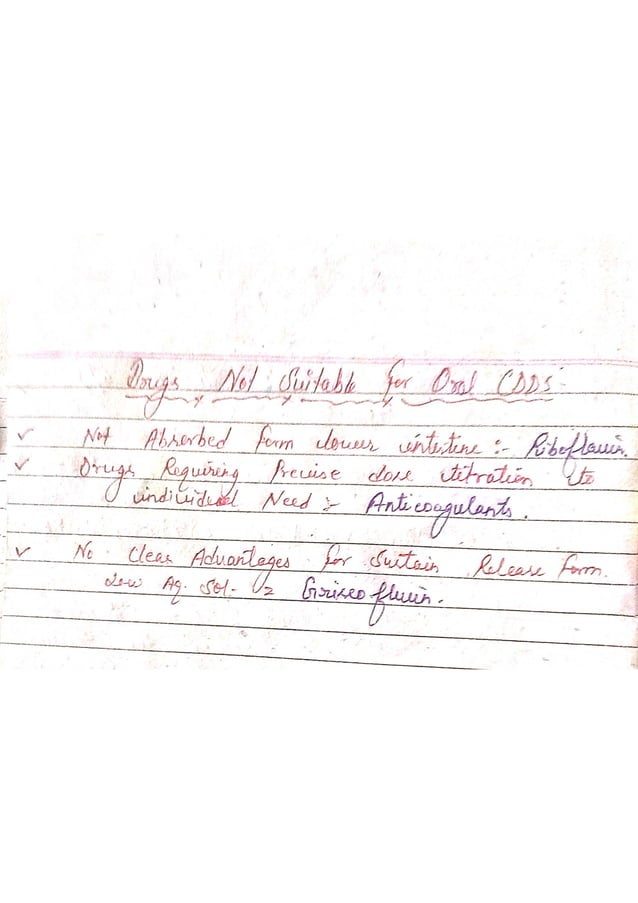 Drugs Not Suitable for Oral CDDS
✓ Not Absorbed form lower intestine :- Riboflavin.
✓ Drugs Requiring Precise dose titration to
individual Need :- Anticoagulants.
✓ No Clear Advantages for Sustain Release form.
Low Aq. Sol. = Griseofluvin.